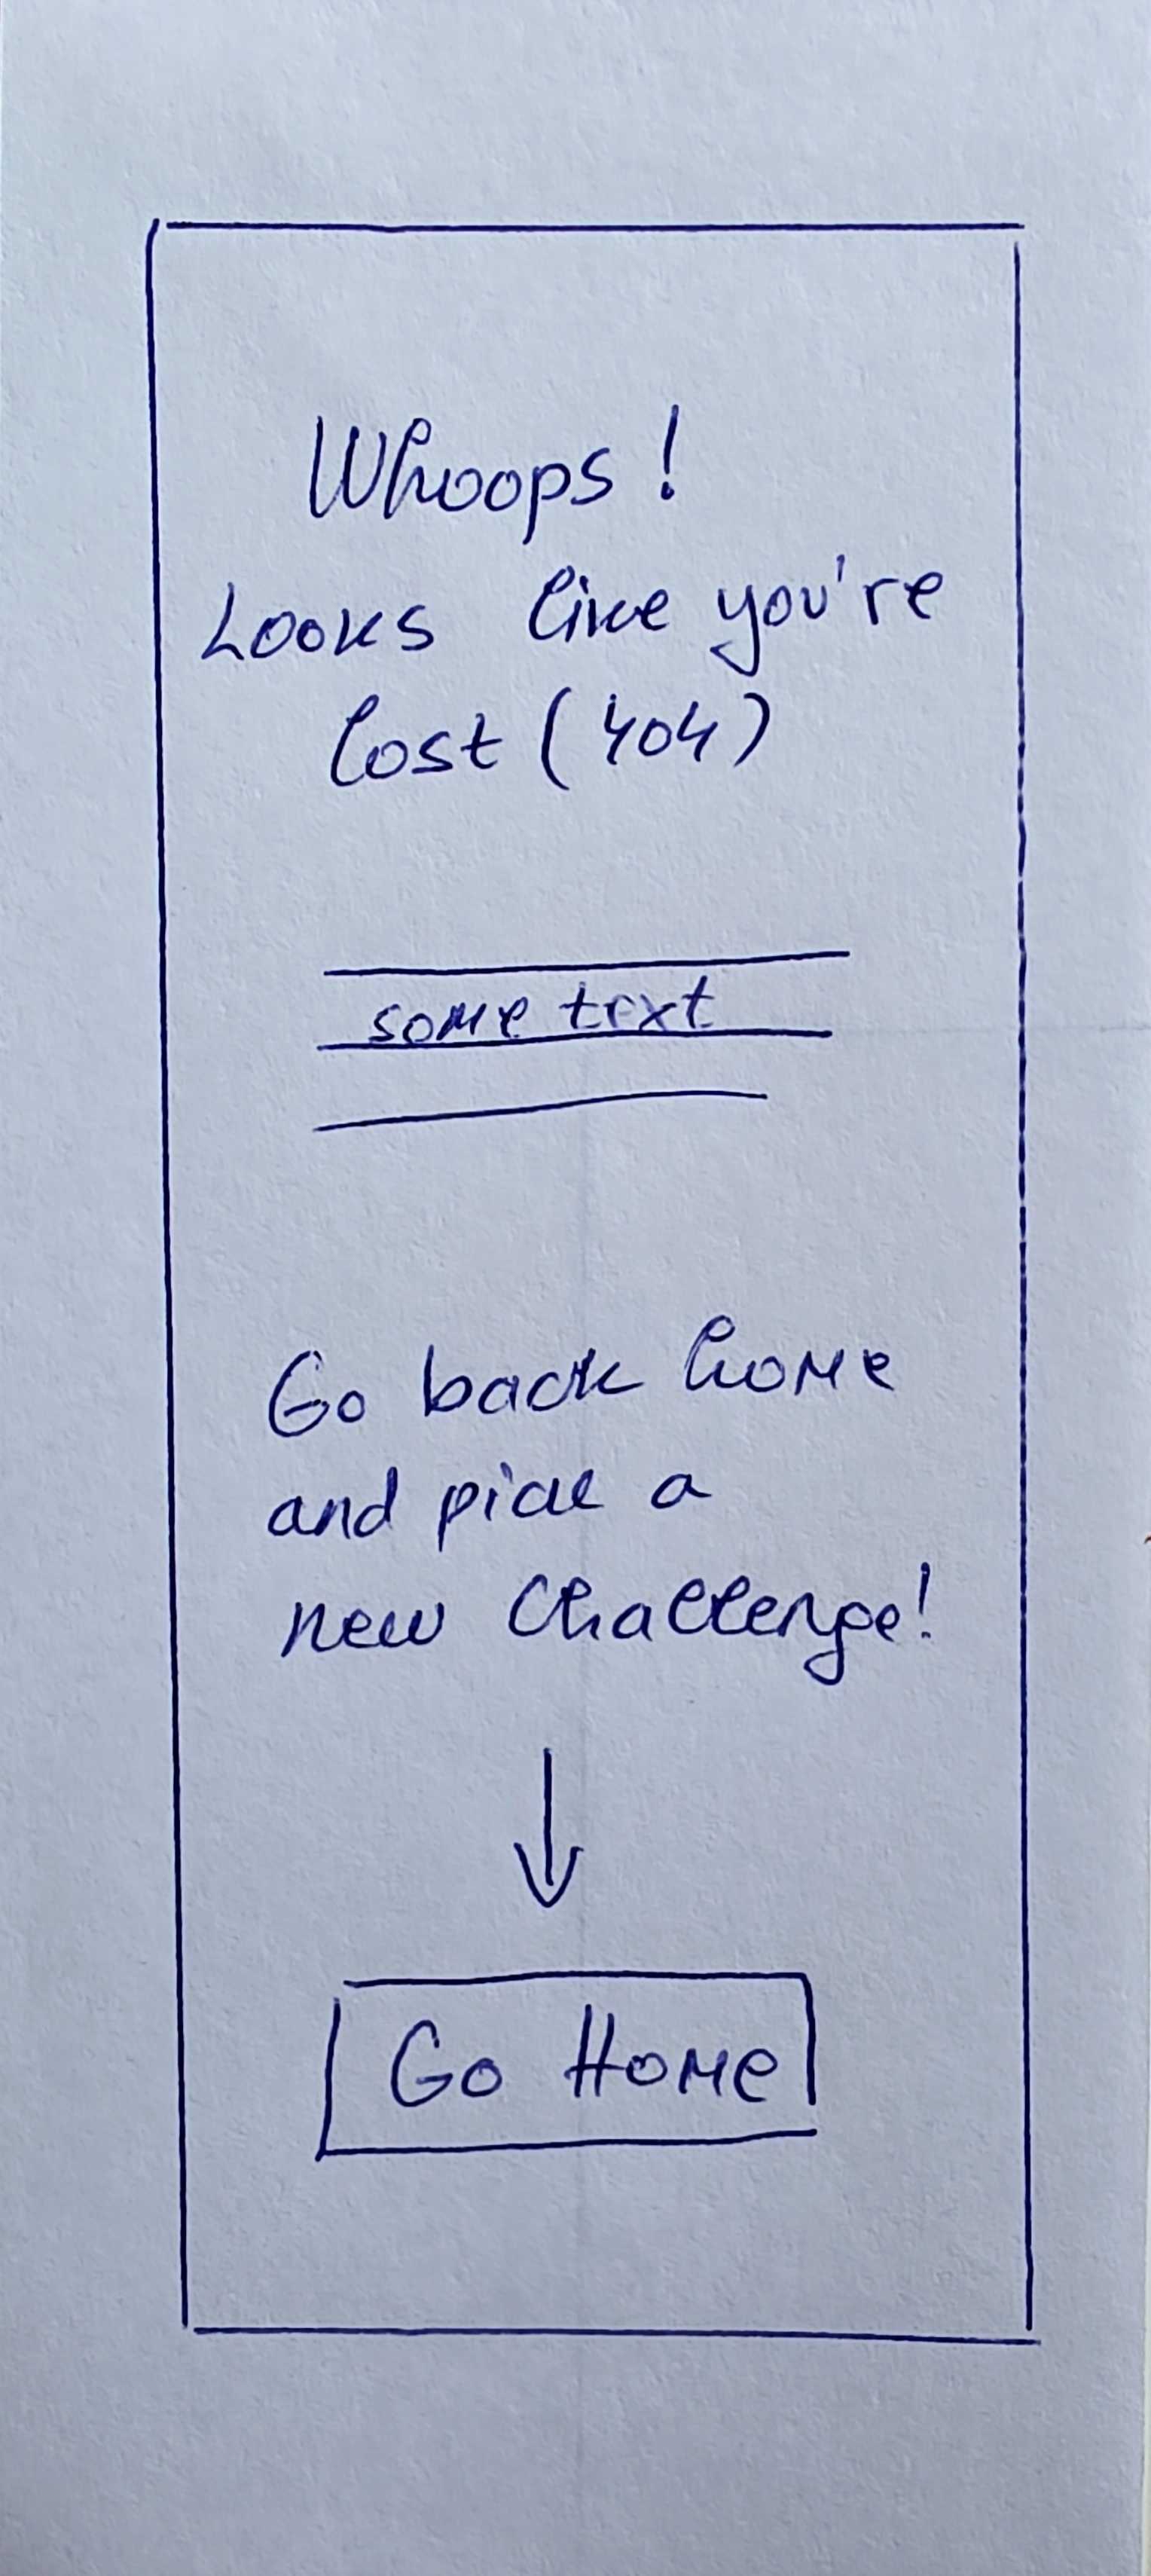 Whoops!
Looks like you're
lost (404)
some text
Go back home
and pick a
new Challenge!
Go Home